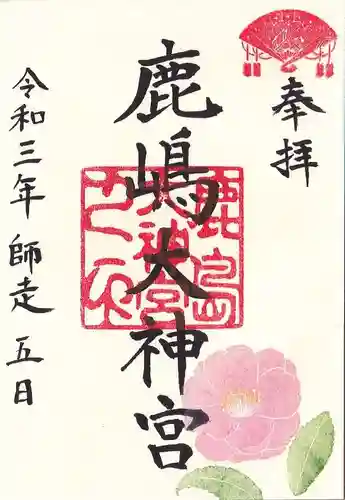 奉拝
鹿嶋大神宮
令和三年 師走 五日